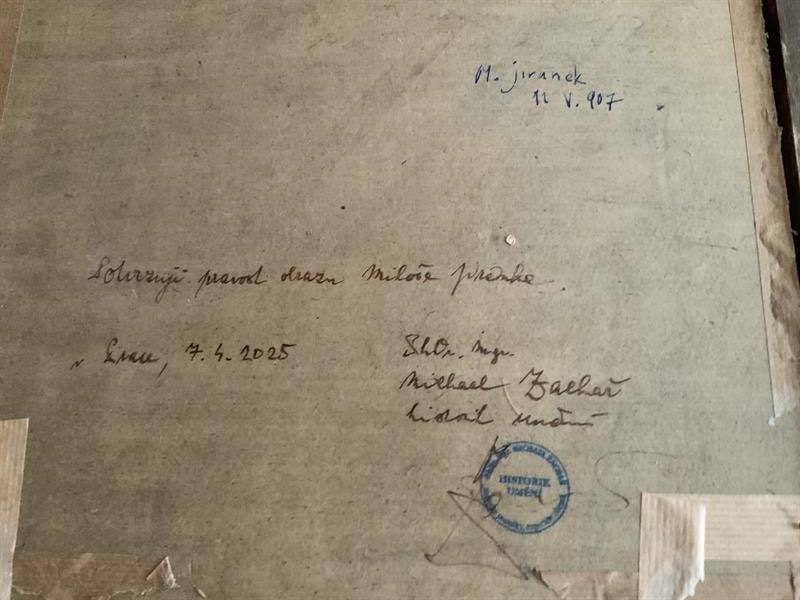 M. Jiránek
11 V. 907
Potvrzuji pravost obrazu Miloše Jiránka.
V Praze, 7. 4. 2025
PhDr. Mgr.
Michael Zachař
historik umění
HISTORIK
UMĚNÍ